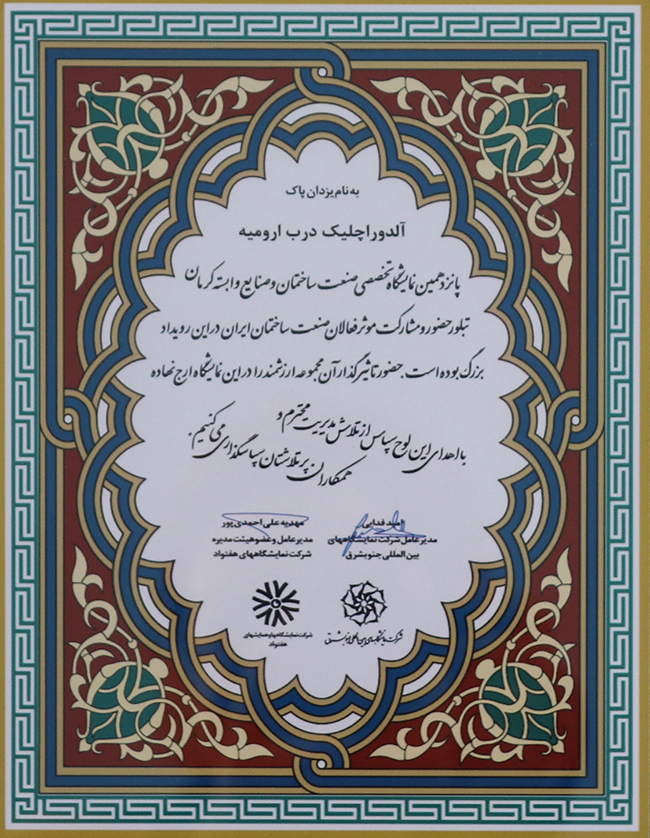 به نام یزدان پاک
آلدورا چلیک درب ارومیه
پانزدهمین نمایشگاه تخصصی صنعت ساختمان و صنایع وابسته کرمان
تبلور حضور و مشارکت موثر فعالان صنعت ساختمان ایران در این رویداد
بزرگ بوده است. حضور تاثیرگذار آن مجموعه ارزشمند را در این نمایشگاه ارج نهاده
با اهدای این لوح سپاس از تلاش مدیریت محترم و
همکاران پر تلاشتان سپاسگذاری می کنیم.
امید فدایی
مدیرعامل شرکت نمایشگاههای
بین المللی جنوبشرق
مهدیه علی احمدی پور
مدیرعامل و عضو هیئت مدیره
شرکت نمایشگاههای هفتواد
شرکت نمایشگاههای بین المللی جنوبشرق
شرکت نمایشگاهها و همایشهای
هفتواد